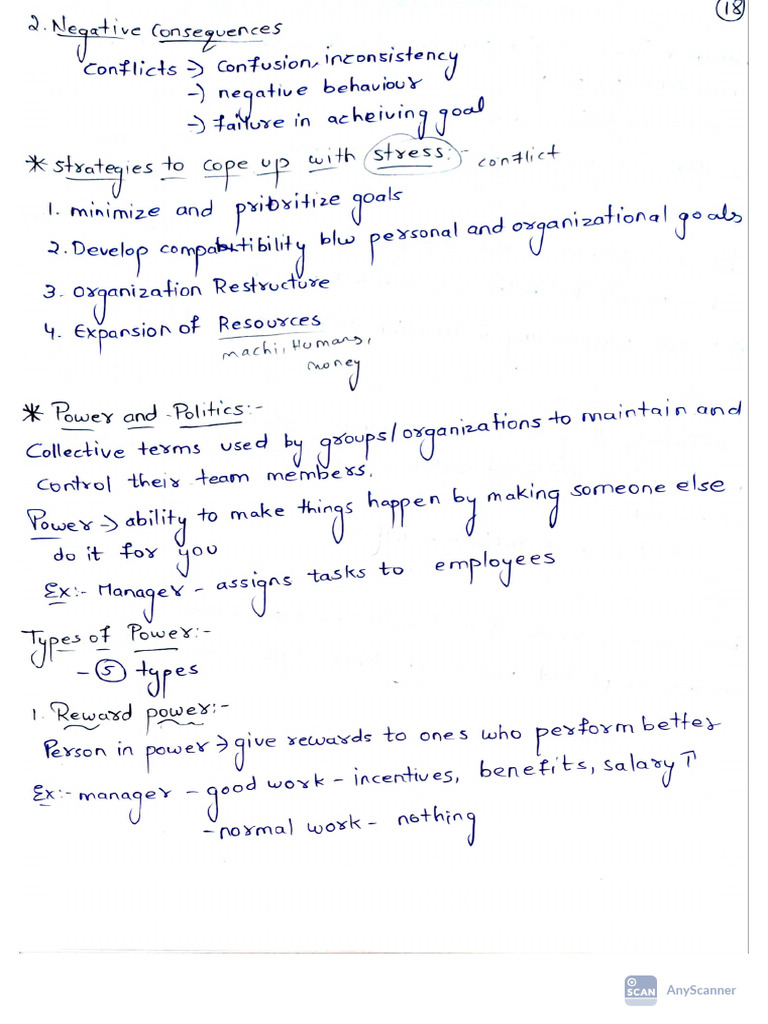 18
2. Negative Consequences
Conflicts → confusion, inconsistency
→ negative behaviour
→ failure in acheiving goal
* Strategies to cope up with stress:- conflict
1. minimize and prioritize goals
2. Develop compatibility b/w personal and organizational goals
3. Organization Restructure
4. Expansion of Resources
machi, Humans,
money
* Power and Politics:-
Collective terms used by groups/organizations to maintain and
control their team members.
Power → ability to make things happen by making someone else
do it for you
Ex:- Manager - assigns tasks to employees
Types of Power:-
- 5 types
1. Reward power:-
Person in power → give rewards to ones who perform better
Ex:- manager - good work - incentives, benefits, salary ↑
- normal work - nothing
SCAN AnyScanner